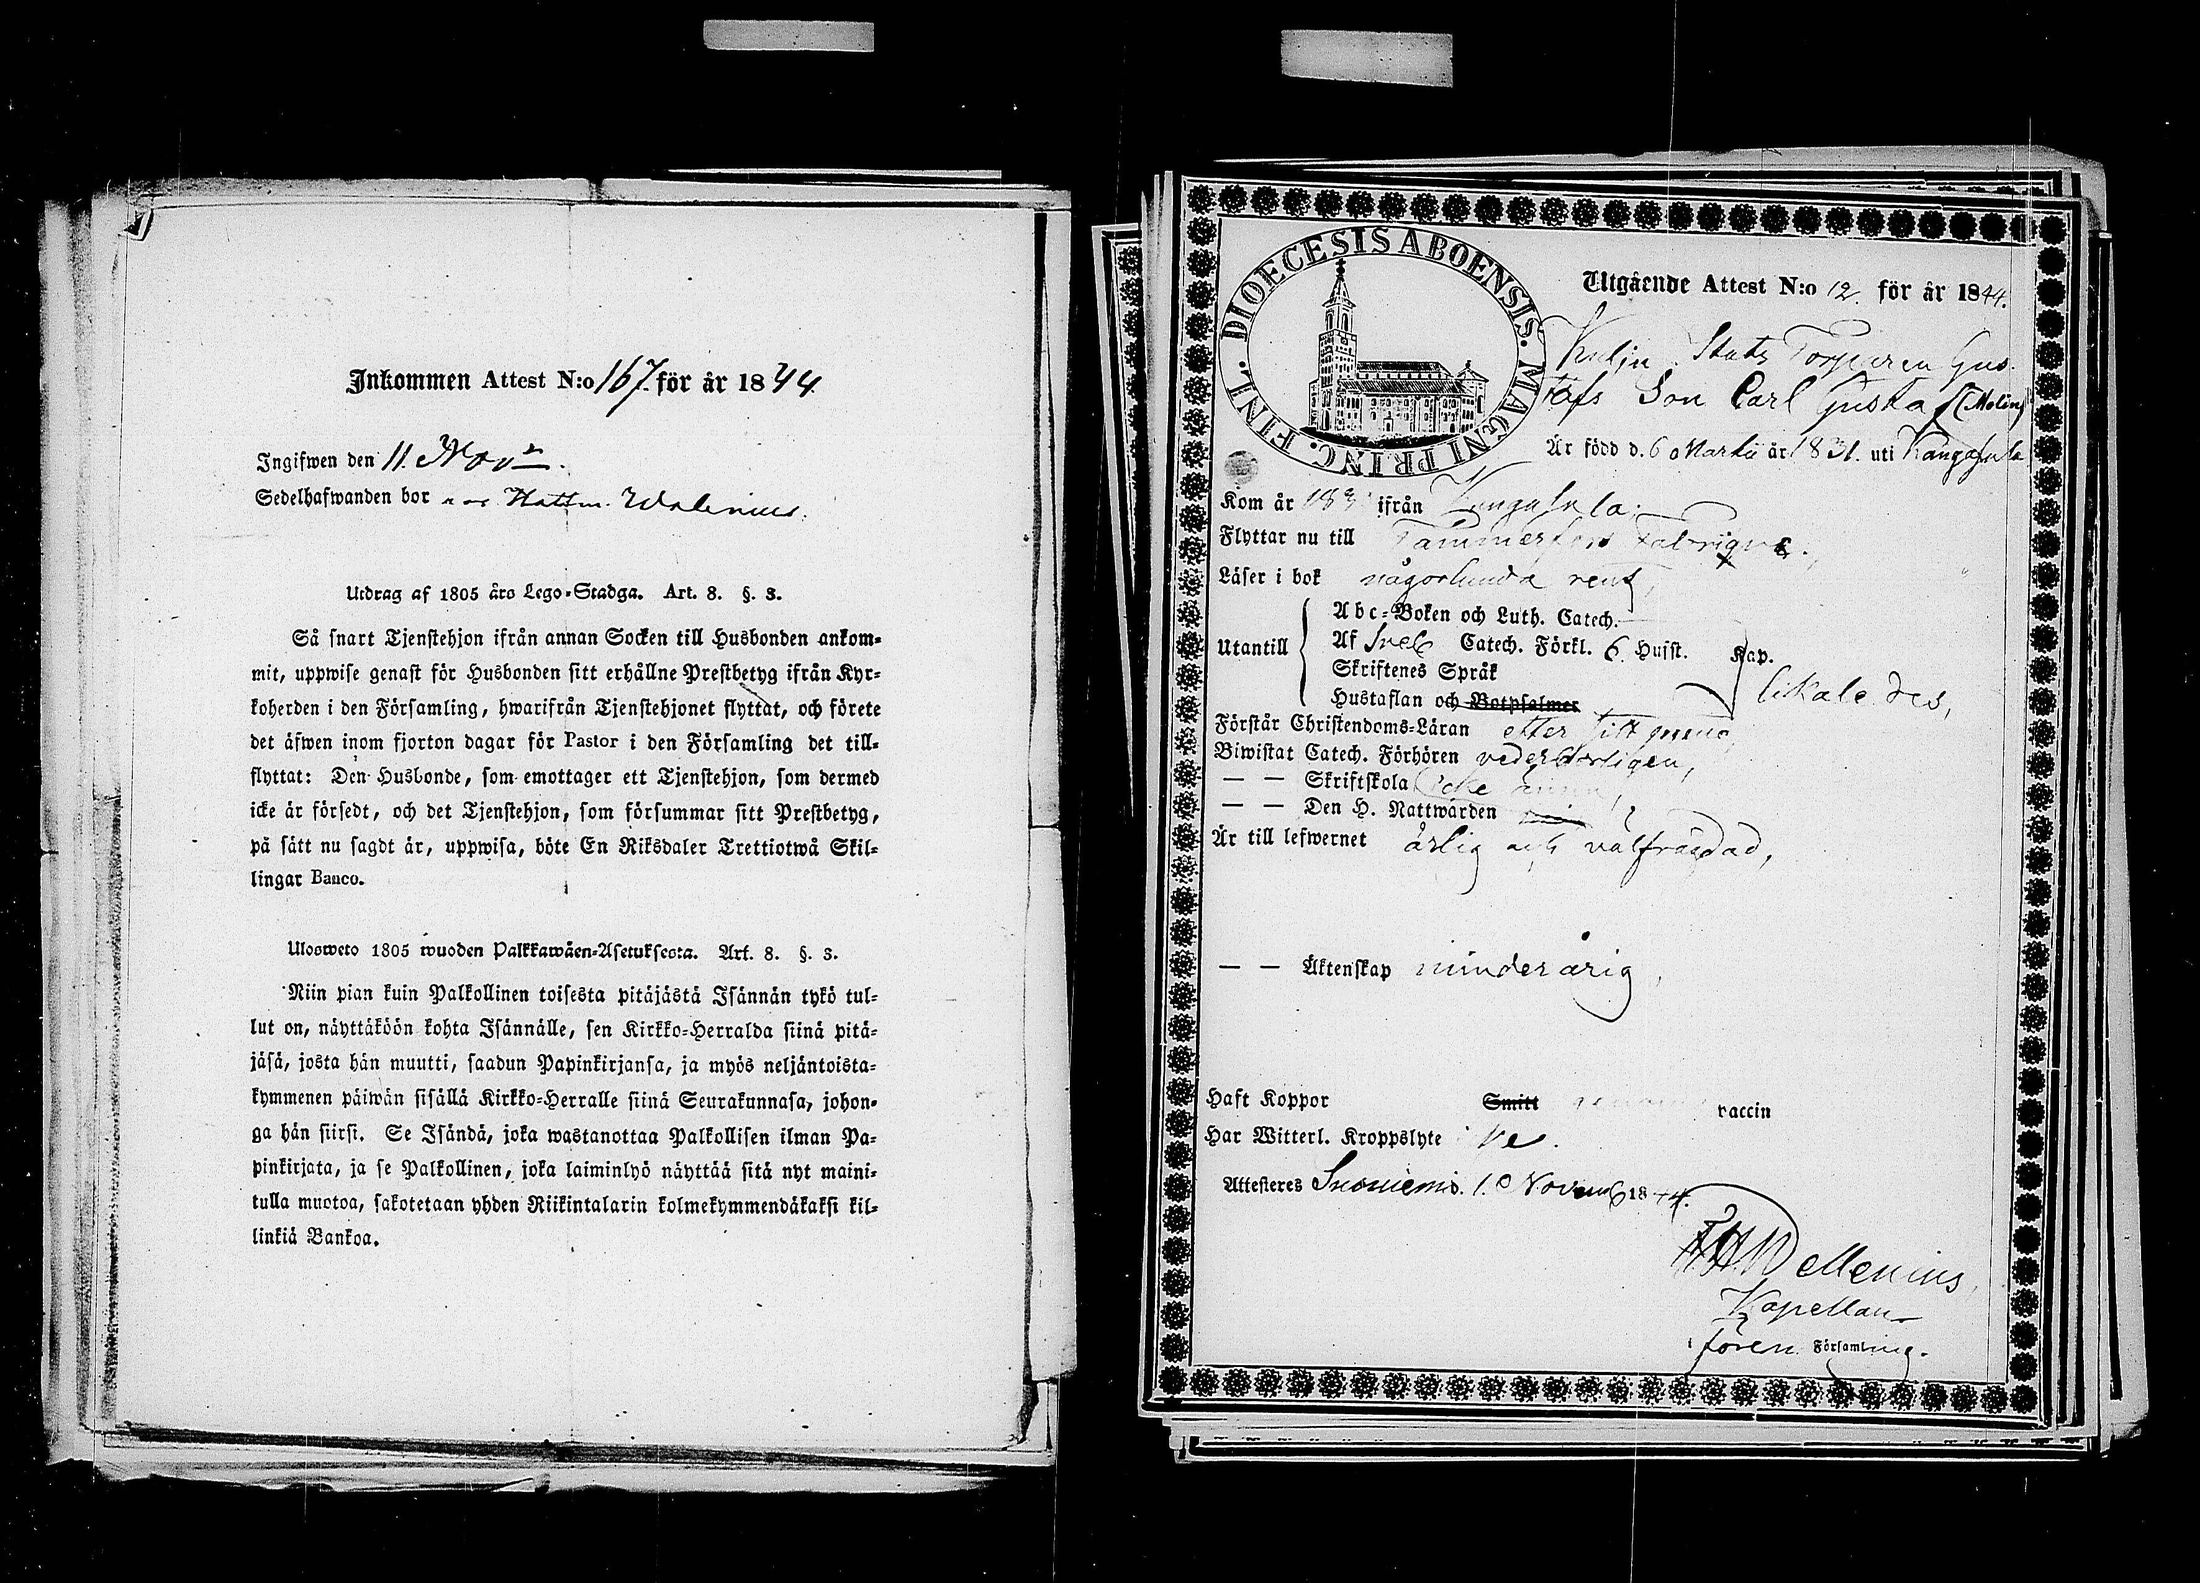 Inkommen Attest N:o 167. för år 1844.
Ingifwen den 11. Nov
Sedelhafwanden bor Hattm. Walenius.
Utdrag af 1805 års Lego-Stadga. Art. 8. §. 3.
Så snart Tjenstehjon ifrån annan Socken till Husbonden ankom-
mit, uppwise genast för Husbonden sitt erhållne Prestbetyg ifrån Kyr-
koherden i den Församling, hwarifrån Tjenstehjonet flyttat, och förete
det äfwen inom fjorton dagar för Pastor i den Församling det till-
flyttat: Den Husbonde, som emottager ett Tjenstehjon, som dermed
icke är försedt, och det Tjenstehjon, som försummar sitt Prestbetyg,
på sätt nu sagdt är, uppwisa, böte En Riksdaler Trettiotwå Skil-
lingar Banco.
Ulosweto 1805 wuoden Palkkawäen-Asetuksesta. Art. 8. §. 3.
Niin pian kuin Palkollinen toisesta pitäjästä Isännän tykö tul-
lut on, näyttäköön kohta Isännälle, sen Kirkko-Herralda siinä pitä-
jäsä, josta hän muutti, saadun Papinkirjansa, ja myös neljäntoista-
kymmenen päiwän sisällä Kirkko-Herralle siinä Seurakunnasa, johon-
ga hän siirsi. Se Isändä, joka wastanottaa Palkollisen ilman Pa-
pinkirjata, ja se Palkollinen, joka laiminlyö näyttää sitä nyt maini-
tulla muotoa, sakotetaan yhden Riikintalarin kolmekymmendäkaksi kil-
linkiä Bankoa.
DIOECESIS ABOENSIS. MAGNI PRINC. FINL.
Utgående Attest N:o 12. för år 1844.
Kulju Stats Torparen Gus-
tafs Son Carl Gustaf (Molin)
Är född d. 6 Martii år 1831. uti Kangasala
Kom år 183 ifrån Kangasala.
Flyttar nu till Tammerfors Fabrique.,
Läser i bok någorlunda rent,
Utantill
Abc-Boken och Luth. Catech.
Af Sveb Catech. Förkl. 6. Hufst. Kap.
Skriftenes Språk
Hustaflan och Botpsalmer
likaledes,
Förstår Christendoms-Läran efter sitt
Biwistat Catech. Förhören vederbörligen,
— — Skriftskola icke ännu,
— — Den H. Nattwarden
Är till lefwernet ärlig och välfrägdad,
— — Äktenskap minderårig,
Haft Koppor Smitt genom vaccin
Har Witterl. Kroppslyte
Attesteres Suoniemi d. 10 Novemb 1844.
Mellenius,
Kapellan
Församling.